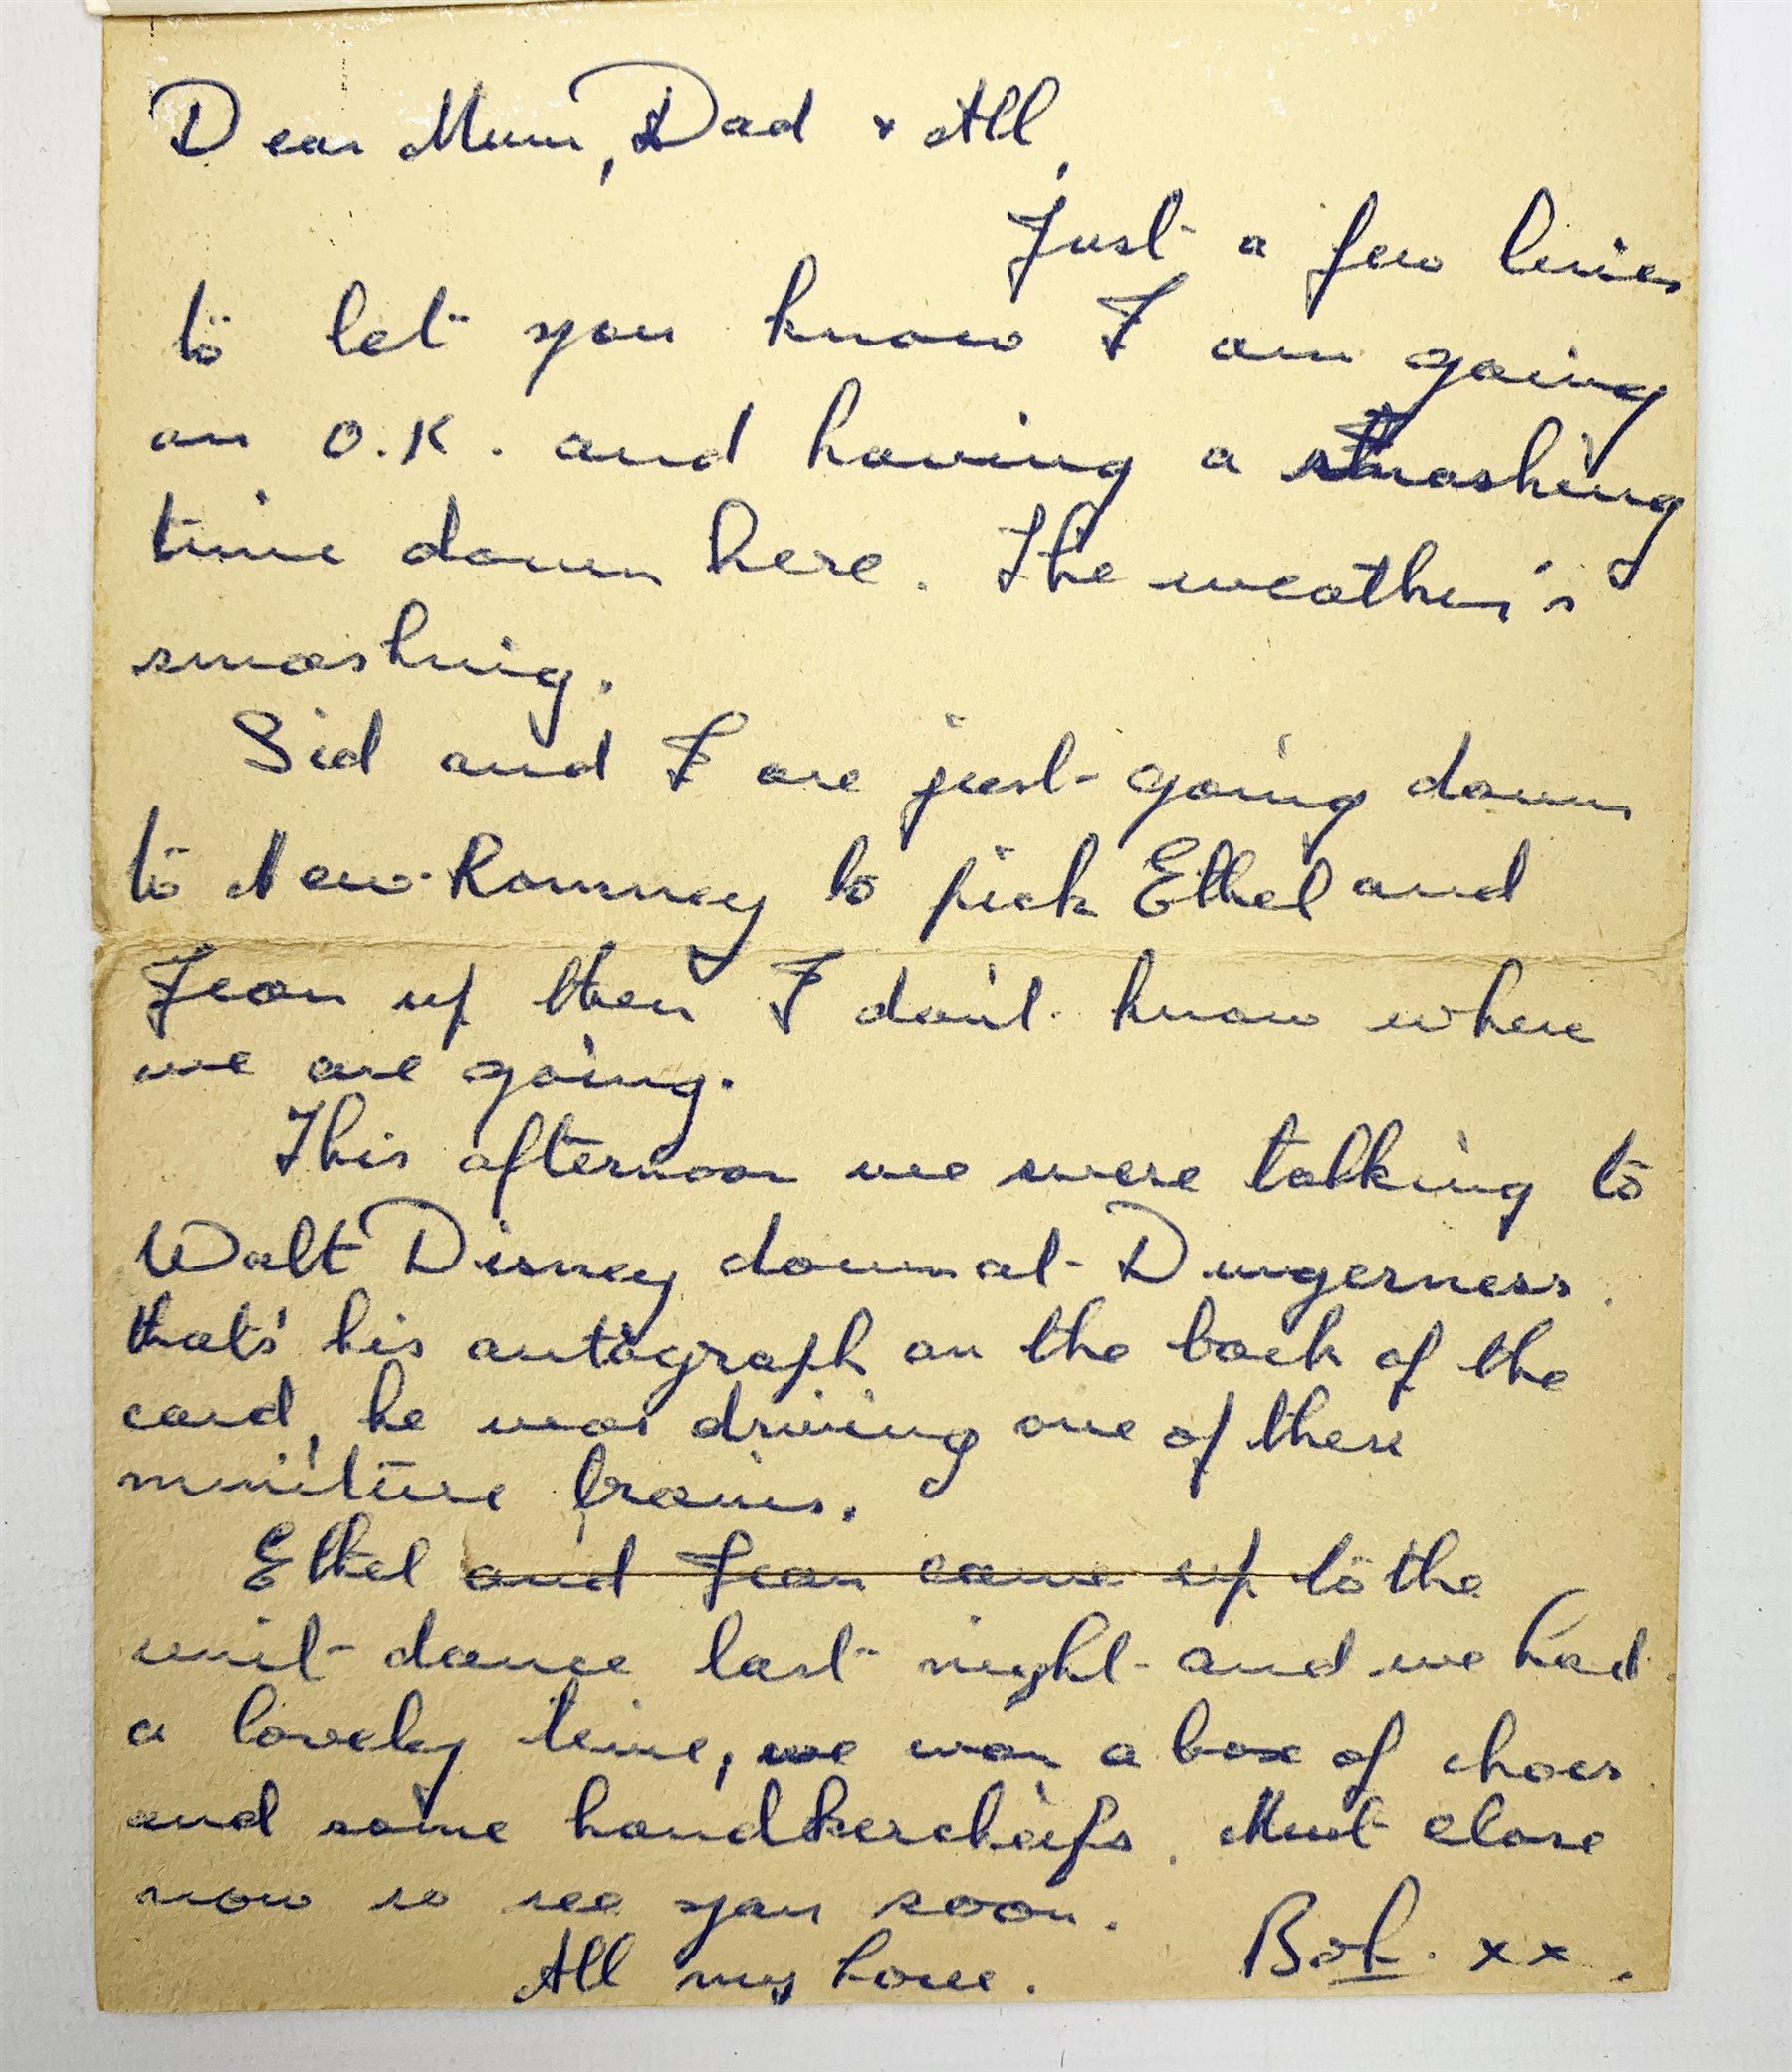 Dear Mum, Dad & All,
Just a few lines
to let you know I am going
on O.K. and having a smashing
time down here. The weather's
smashing.
Sid and I are just going down
to New-Romney to pick Ethel and
Jean up then I don't know where
we are going.
This afternoon we were talking to
Walt Disney down at Dungerness.
that's his autograph on the back of the
card, he was driving one of these
miniture trains.
Ethel and Jean came up to the
unit dance last night and we had
a lovely time, we won a box of chocs
and some handkercheifs. Must close
now so see you soon.
All my love. Bob. xx.